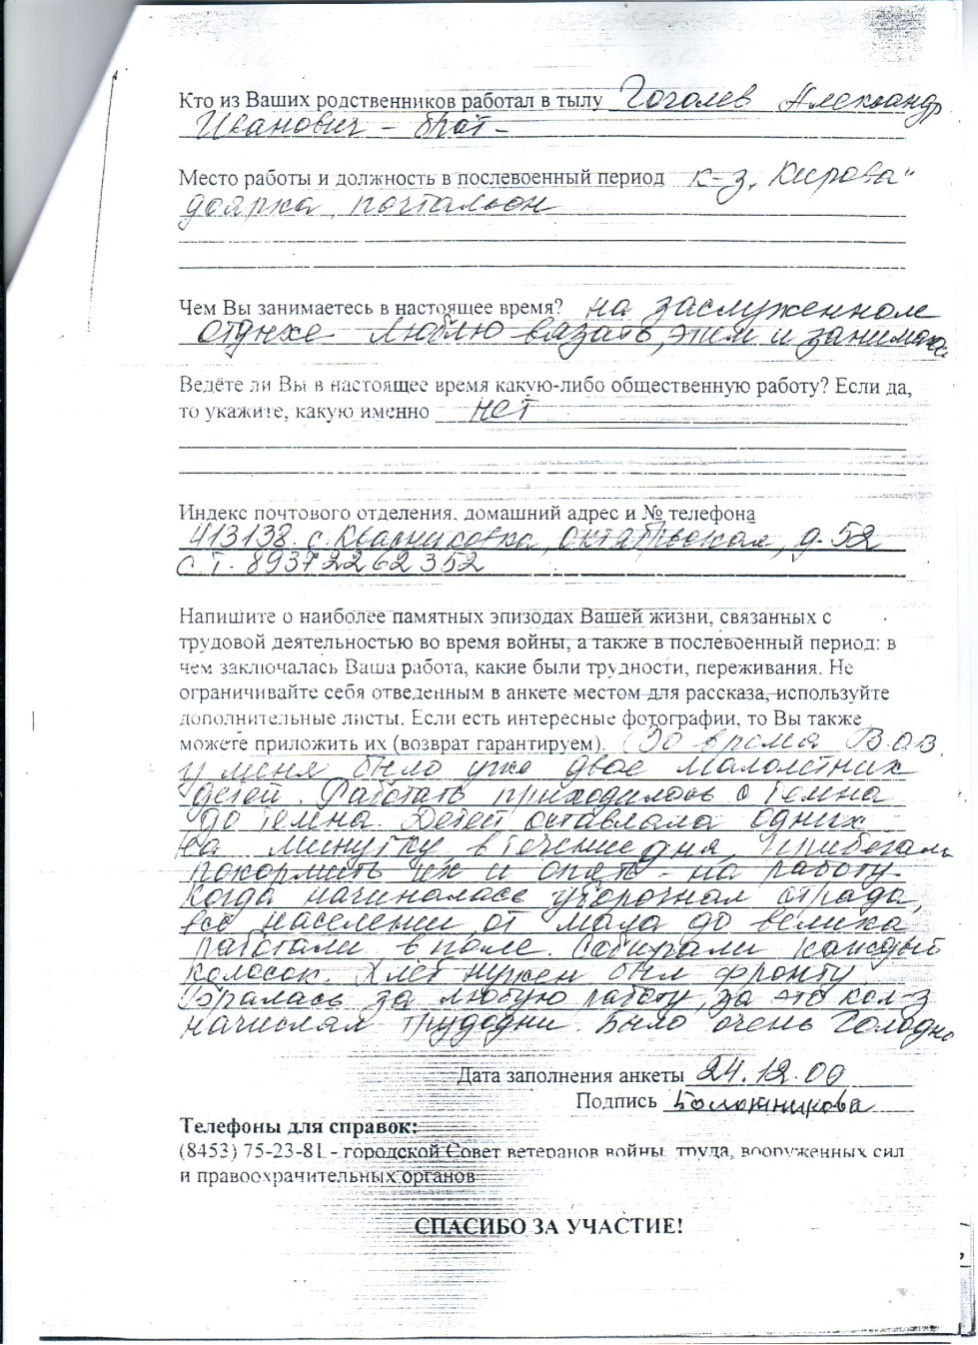 Кто из Ваших родственников работал в тылу Гоголев Александр
Иванович – брат –
Место работы и должность в послевоенный период к-з „Кирова“
доярка, почтальон
Чем Вы занимаетесь в настоящее время? на заслуженном
отдыхе люблю вязать, этим и занимаюсь
Ведёте ли Вы в настоящее время какую-либо общественную работу? Если да,
то укажите, какую именно нет
Индекс почтового отделения, домашний адрес и № телефона
413138. с. Квасниковка, Октябрьская, д. 52
с.т. 89372262352
Напишите о наиболее памятных эпизодах Вашей жизни, связанных с
трудовой деятельностью во время войны, а также в послевоенный период: в
чем заключалась Ваша работа, какие были трудности, переживания. Не
ограничивайте себя отведенным в анкете местом для рассказа, используйте
дополнительные листы. Если есть интересные фотографии, то Вы также
можете приложить их (возврат гарантируем). Во время В.О.В.
у меня было уже двое малолетних
детей. Работать приходилось с темна
до темна. Детей оставляла одних
на минутку в течение дня прибегала
покормить их и опять – на работу.
Когда начиналась уборочная страда,
всё население от мала до велика
работали в поле. Собирали каждый
колосок. Хлеб нужен был фронту.
Бралась за любую работу, за это кол-з
начислял трудодни. Было очень голодно
Дата заполнения анкеты 24.12.09
Подпись Болотникова
Телефоны для справок:
(8453) 75-23-81 - городской Совет ветеранов войны, труда, вооруженных сил
и правоохранительных органов
СПАСИБО ЗА УЧАСТИЕ!